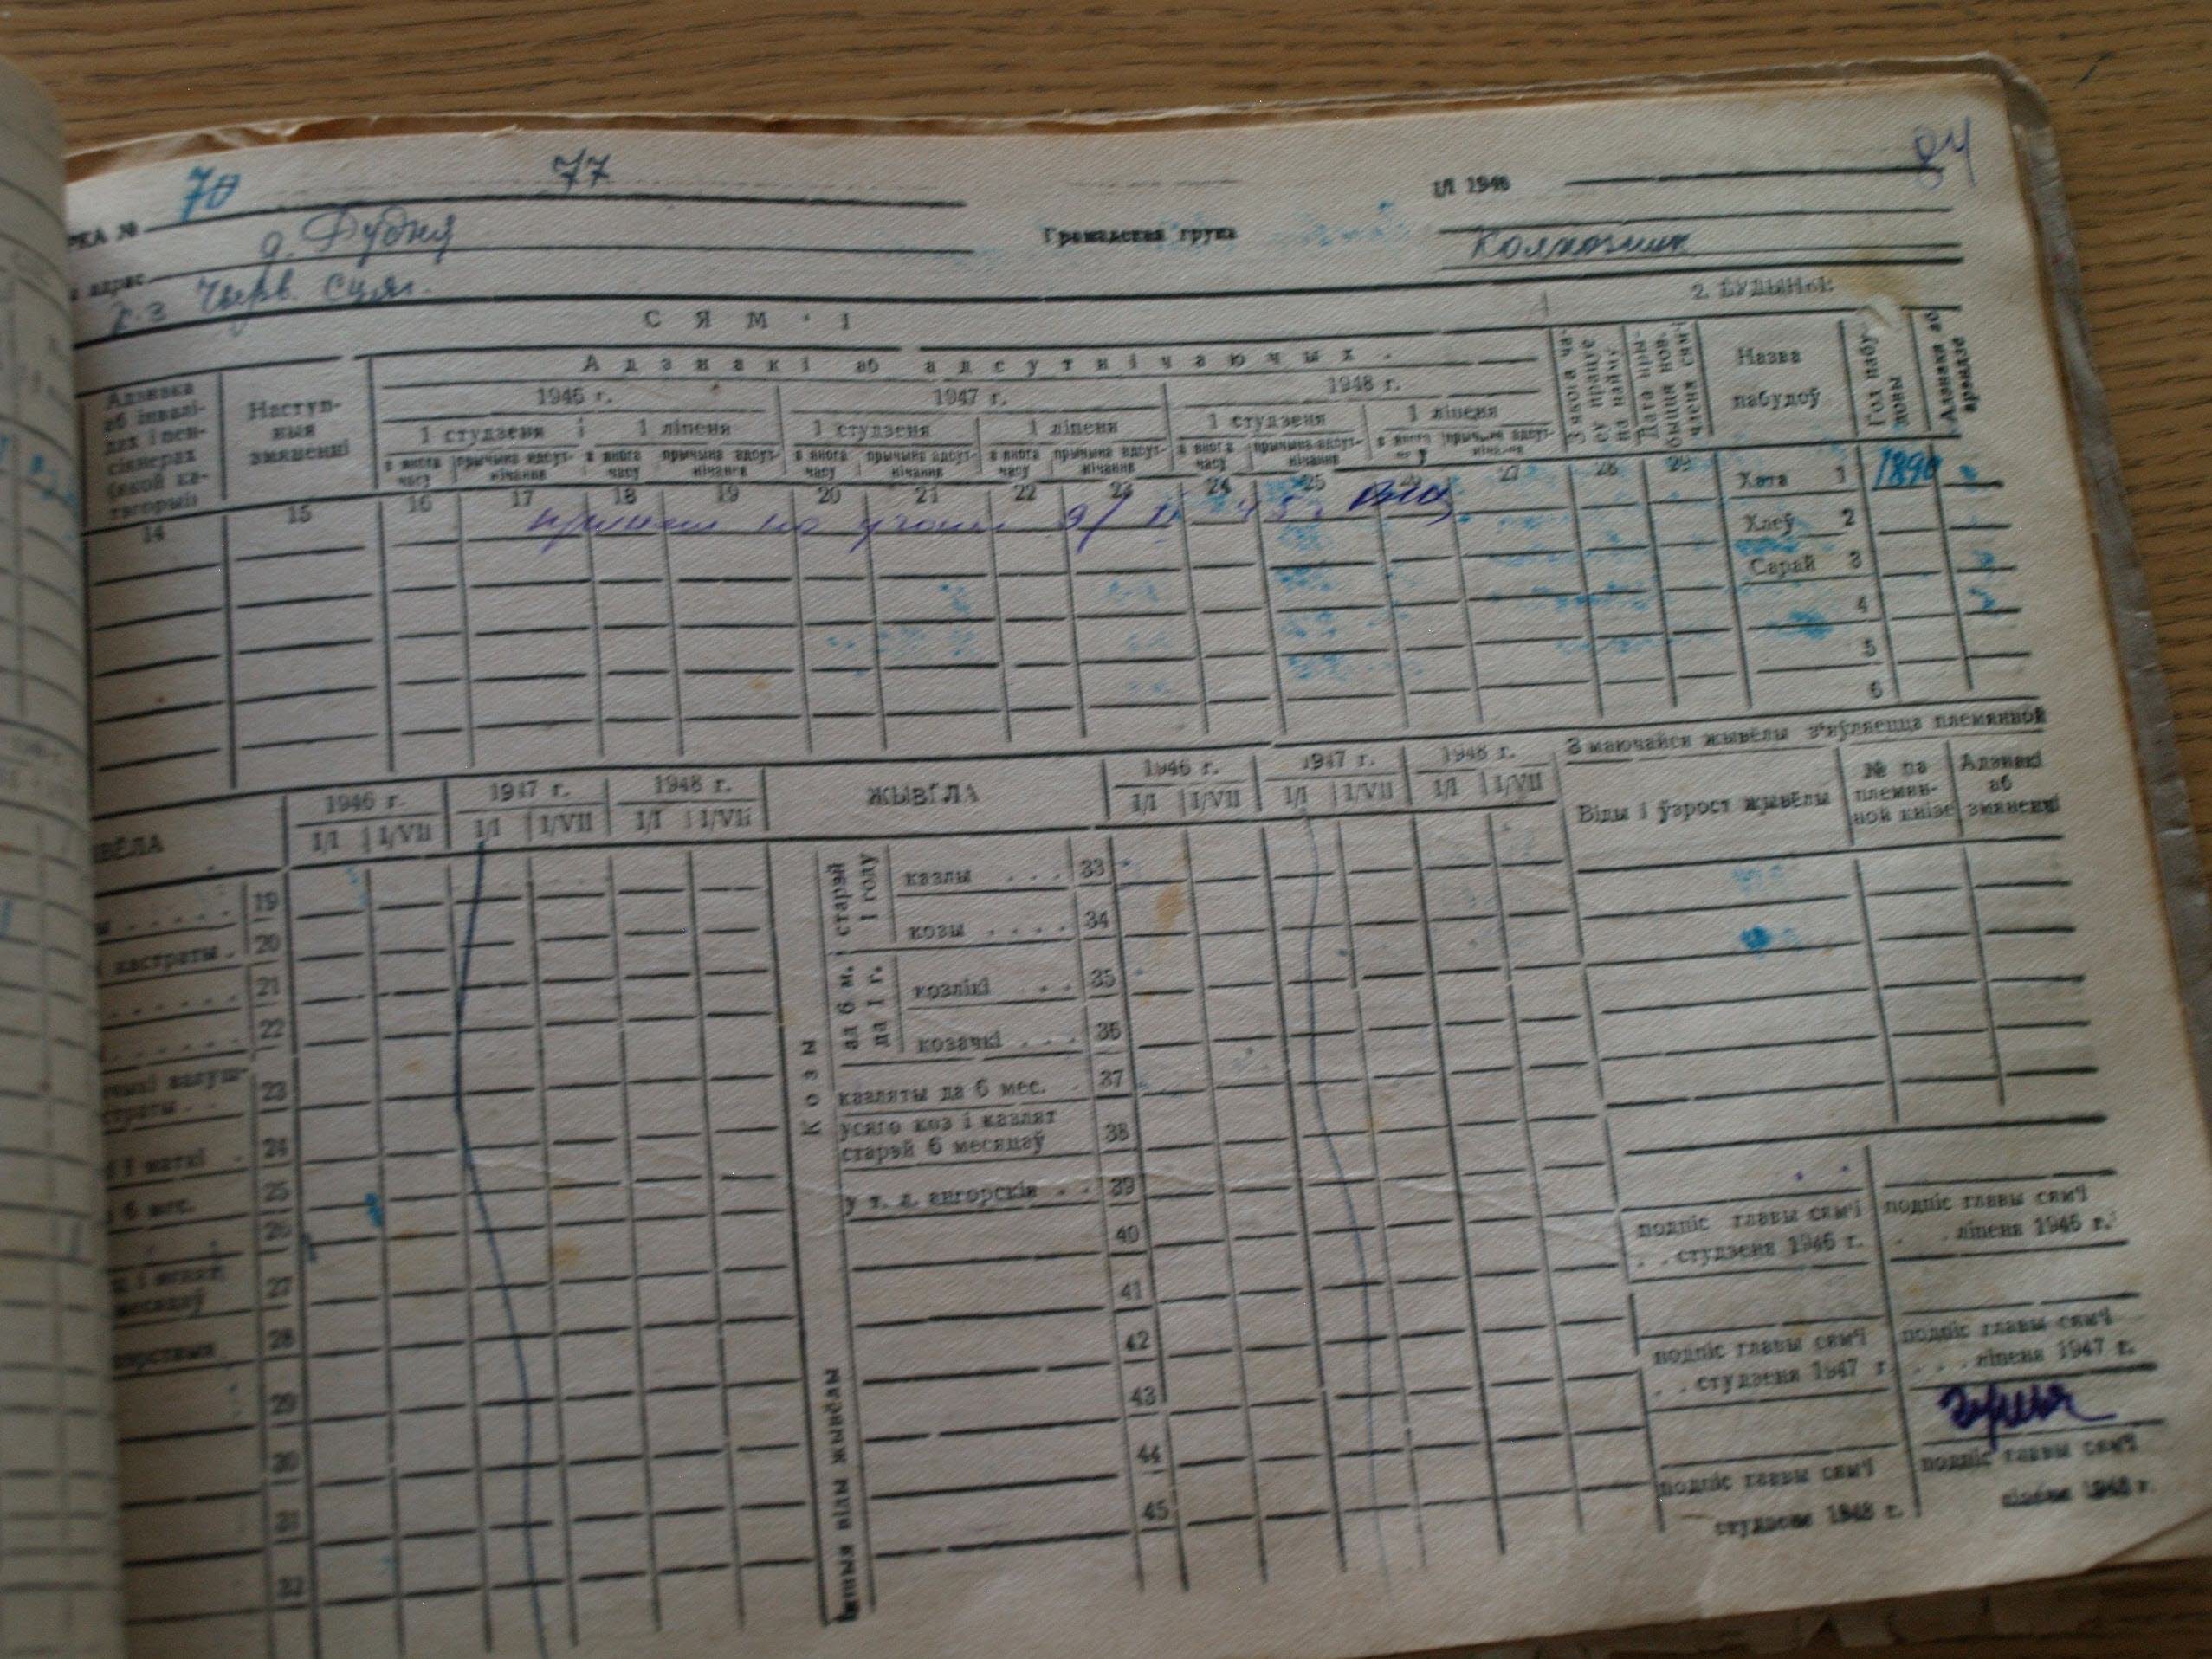 РКА № 70 77 84
I/I 1946
адрас д. Дудня
Грамадская група Колхозник
к-з Чырв. Сцяг.
2. БУДЫНКІ
СЯМ'І
Адзнакі аб адсутнічаючых
Адзнака аб інвалідах і пенсіянерах (якой катэгорыі)
Наступныя змяненні
1946 г. 1947 г. 1948 г.
1 студзеня 1 ліпеня 1 студзеня 1 ліпеня 1 студзеня 1 ліпеня
з якога часу прычына адсутнічання з якога часу прычына адсутнічання з якога часу прычына адсутнічання з якога часу прычына адсутнічання з якога часу прычына адсутнічання з якога часу прычына адсутнічання
З якога часу працуе па найму
Дата прыбыцця нов. члена сям'і
Назва пабудоў
Год пабудовы
Адзнакі аб арэндзе
14 15 16 17 18 19 20 21 22 23 24 25 26 27 28 29
Хата 1 1890
Хлеў 2
Сарай 3
4
5
6
ВЁЛА
1946 г. 1947 г. 1948 г.
I/I I/VII I/I I/VII I/I I/VII
ЖЫВЁЛА
1946 г. 1947 г. 1948 г.
I/I I/VII I/I I/VII I/I I/VII
З маючайся жывёлы з'яўляецца племянной
Віды і ўзрост жывёлы
№ па племянной кнізе
Адзнакі аб змяненні
19
кастраты . 20
21
22
23
і маткі . 24
6 мес. 25
26
месяцаў 27
28
29
30
31
32
Козы
старэй 1 году
казлы . . . 33
козы . . . . 34
ад 6 м. да 1 г.
козлікі . . 35
козачкі . . . 36
казляты да 6 мес. . 37
усяго коз і казлят старэй 6 месяцаў 38
у т. л. ангорскія . . 39
Іншыя віды жывёлы
40
41
42
43
44
45
подпіс главы сям'і
. . студзеня 1946 г.
подпіс главы сям'і
. . ліпеня 1946 г.
подпіс главы сям'і
. . студзеня 1947 г
подпіс главы сям'і
. . . ліпеня 1947 г.
подпіс главы сям'і
студзеня 1948 г.
подпіс главы сям'і
ліпеня 1948 г.